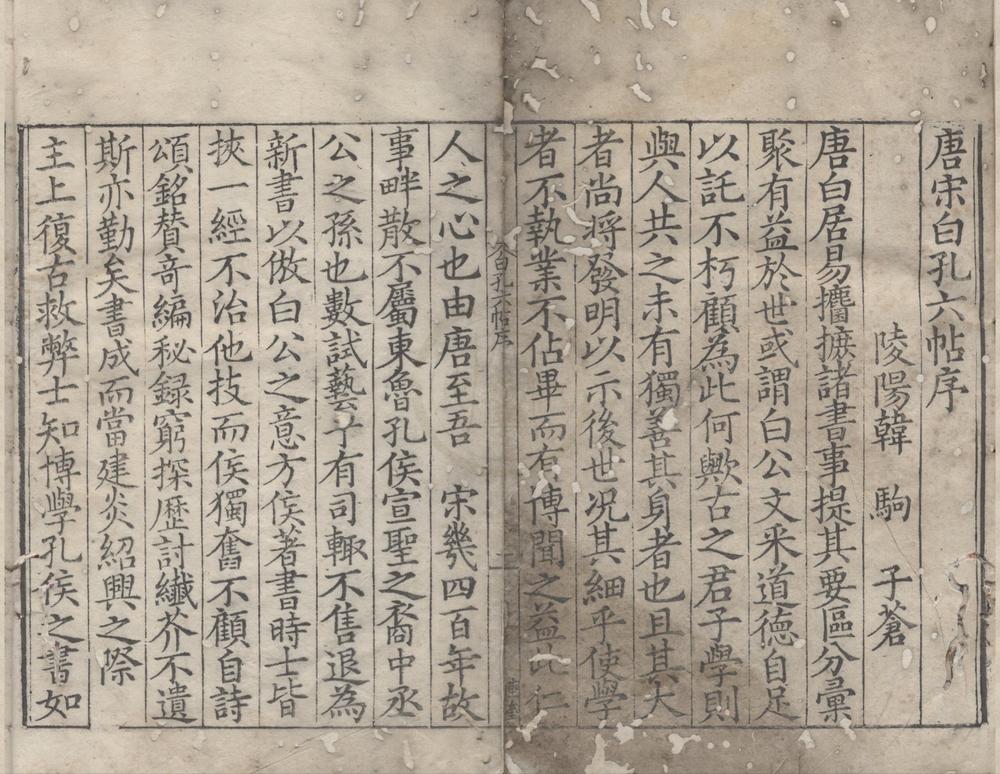 唐宋白孔六帖序
陵陽韓 駒 子蒼
唐白居易攟摭諸書事提其要區分彙
聚有益於世或謂白公文采道德自足
以託不朽顧為此何歟古之君子學則
與人共之未有獨善其身者也且其大
者尚將發明以示後世况其細乎使學
者不執業不佔畢而有傳聞之益此仁
六白孔六帖序
二
人之心也由唐至吾 宋幾四百年故
事畔散不屬東魯孔侯宣聖之裔中丞
公之孫也數試藝于有司輙不售退為
新書以倣白公之意方侯著書時士皆
挾一經不治他技而侯獨奮不顧自詩
頌銘賛竒編秘録窮探歷討纖芥不遺
斯亦勤矣書成而當建炎紹興之際
主上復古救弊士知博學孔侯之書如